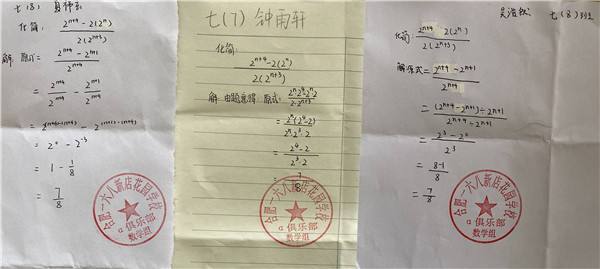 七(8)
化简: \frac{2^{n+4}-2(2^n)}{2(2^{n+3})}
解 原式= \frac{2^{n+4}-2^{n+1}}{2^{n+4}}
= \frac{2^{n+4}}{2^{n+4}} - \frac{2^{n+1}}{2^{n+4}}
= 2^{(n+4)-(n+4)} - 2^{(n+1)-(n+4)}
= 2^0 - 2^{-3}
= 1 - \frac{1}{8}
= \frac{7}{8}
合肥一六八新店花园学校
α俱乐部
数学组
七(7) 钟雨轩
化简:
\frac{2^{n+4}-2(2^n)}{2(2^{n+3})}
解 由题意得 原式: \frac{2^n 2^4-2^n 2}{2·2^{n+3}}
= \frac{2^n(2^4-2)}{2^n·2^3·2}
= \frac{2^4-2}{2^3·2}
= \frac{7}{8}
合肥一六八新店花园学校
α俱乐部
数学组
吴浩 七(8)班
化简: \frac{2^{n+4}-2(2^n)}{2(2^{n+3})}
解:原式= \frac{2^{n+4}-2^{n+1}}{2^{n+4}}
= \frac{(2^{n+4}-2^{n+1})÷2^{n+1}}{2^{n+4}÷2^{n+1}}
= \frac{2^3-2^0}{2^3}
= \frac{8-1}{8}
= \frac{7}{8}
合肥一六八新店花园学校
α俱乐部
数学组